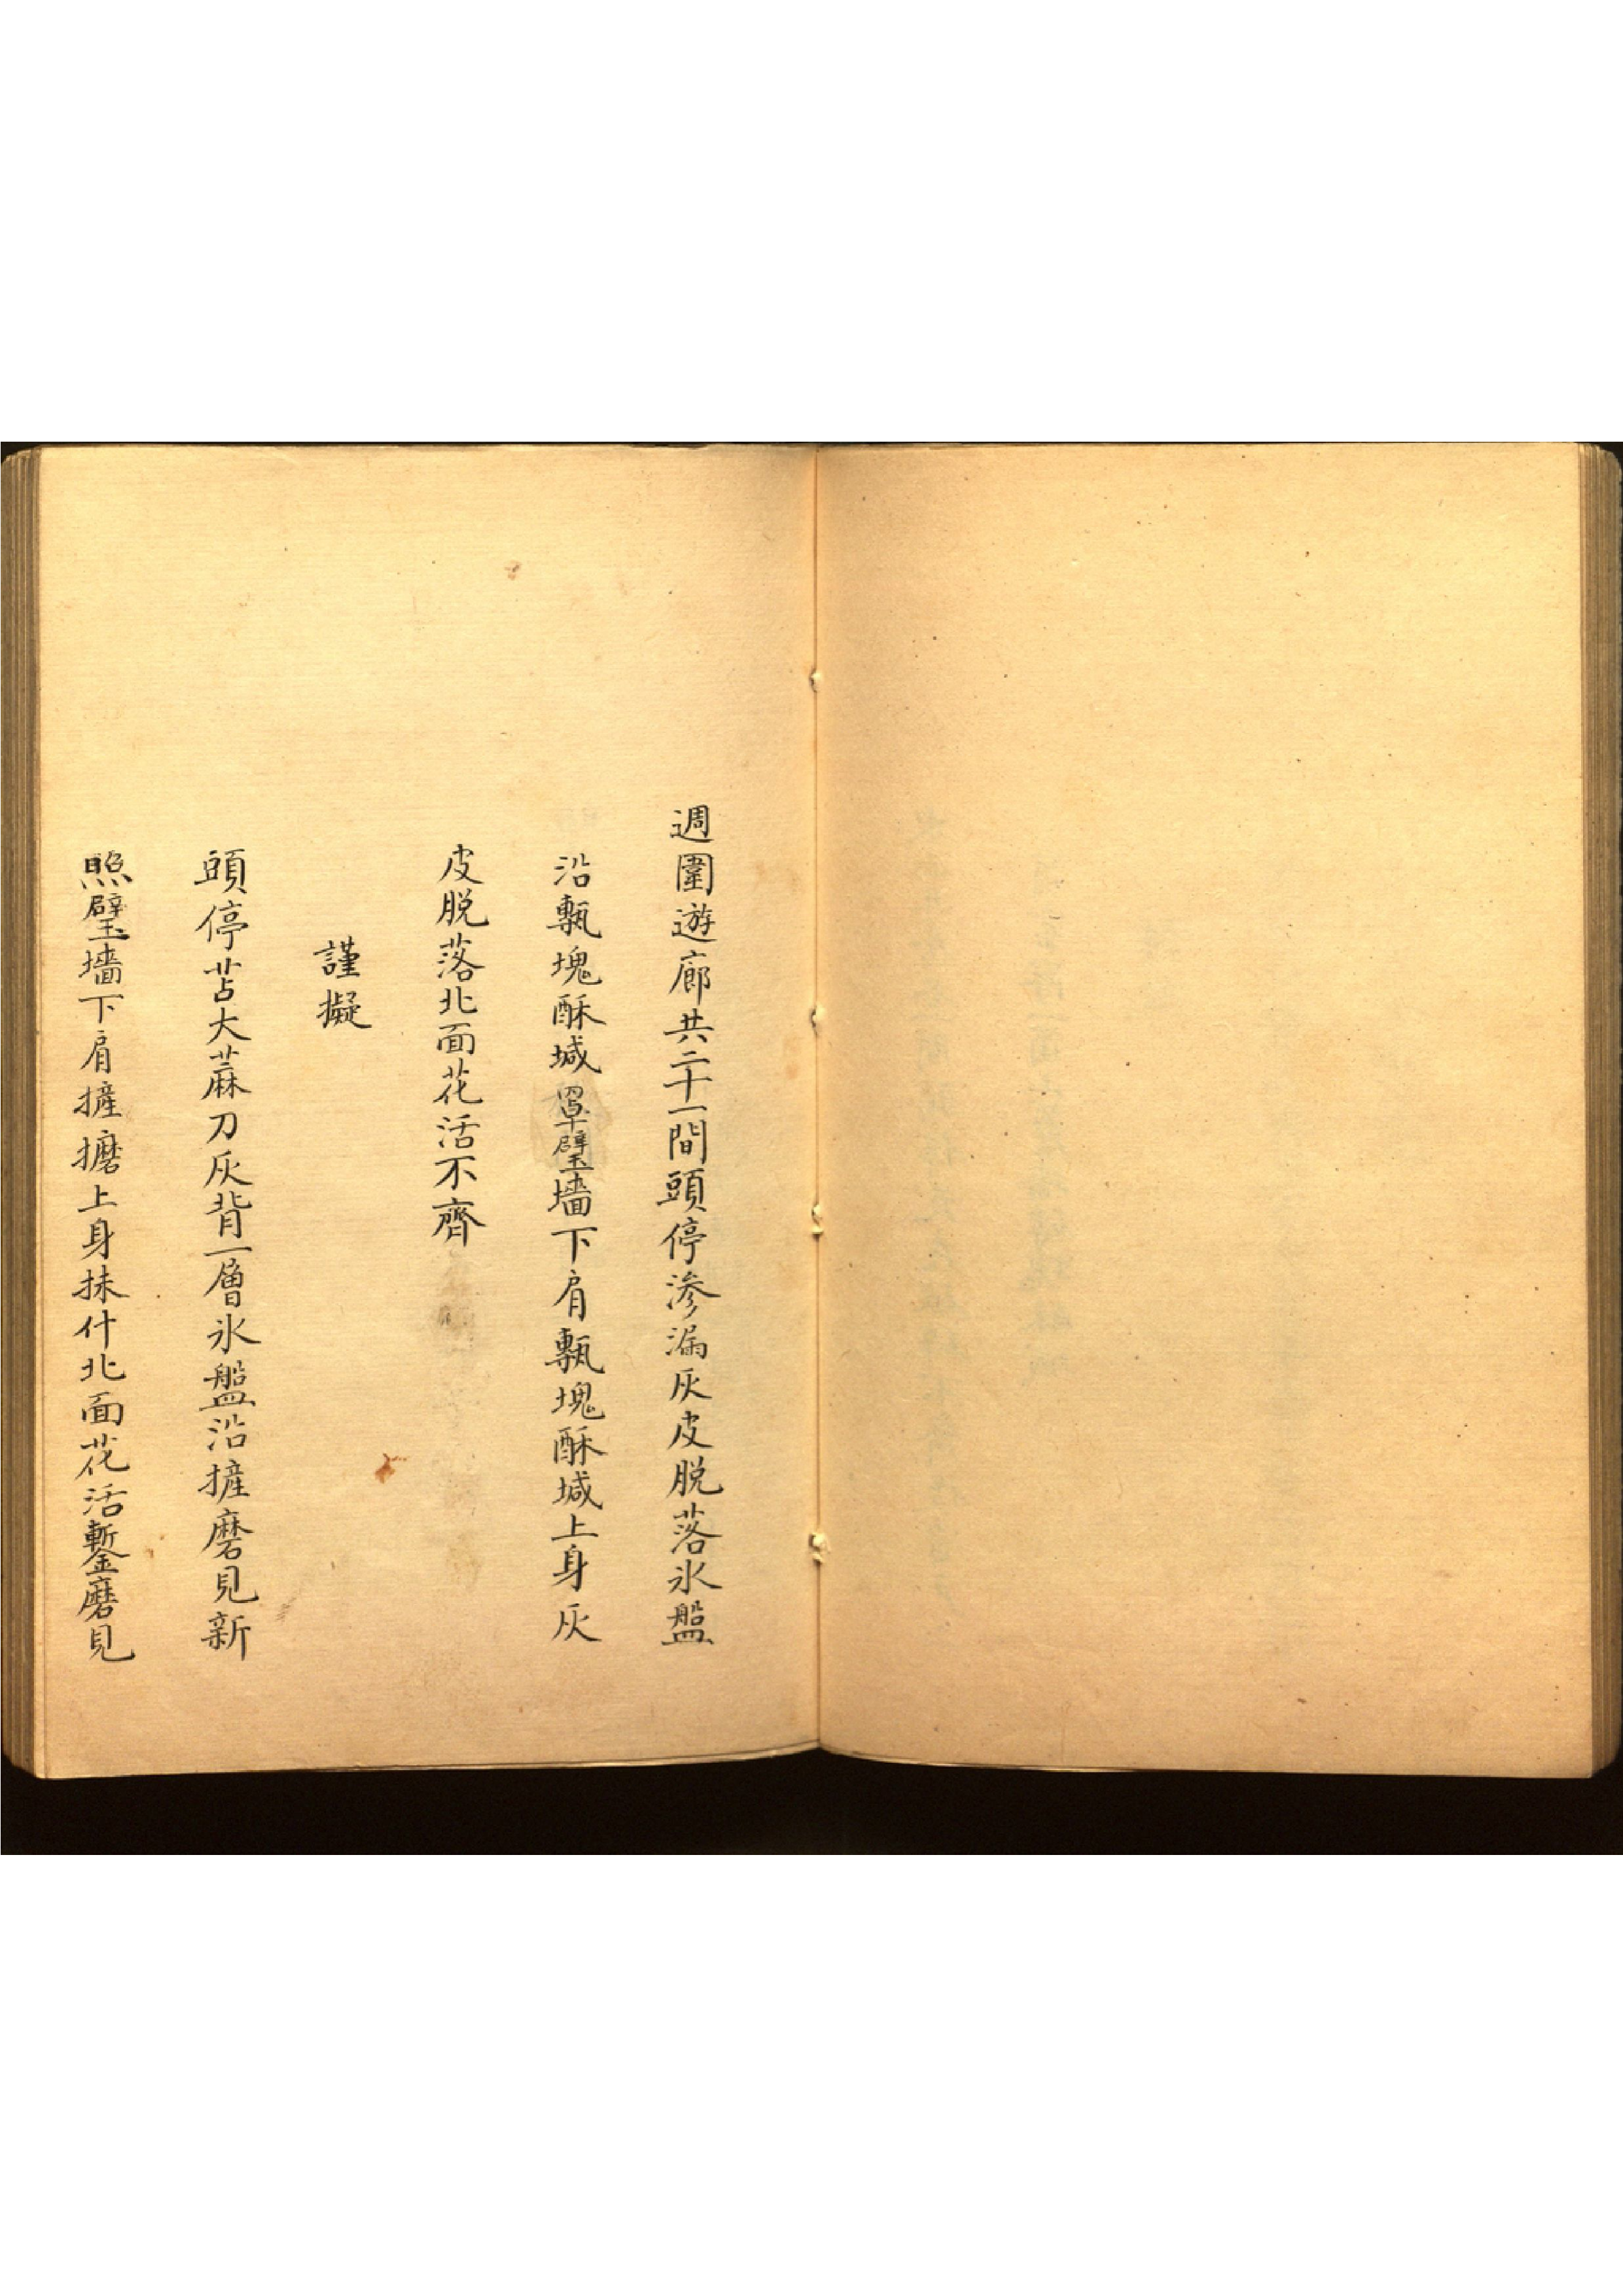 週圍遊廊共二十一間頭停滲漏灰皮脱落氷盤
沿甎塊酥堿罩璧墻下肩甎塊酥堿上身灰
皮脱落北面花活不齊
謹擬
頭停苫大蔴刀灰背一層氷盤沿摌磨見新
照璧墻下肩摌擵上身抹什北面花活鏨磨見